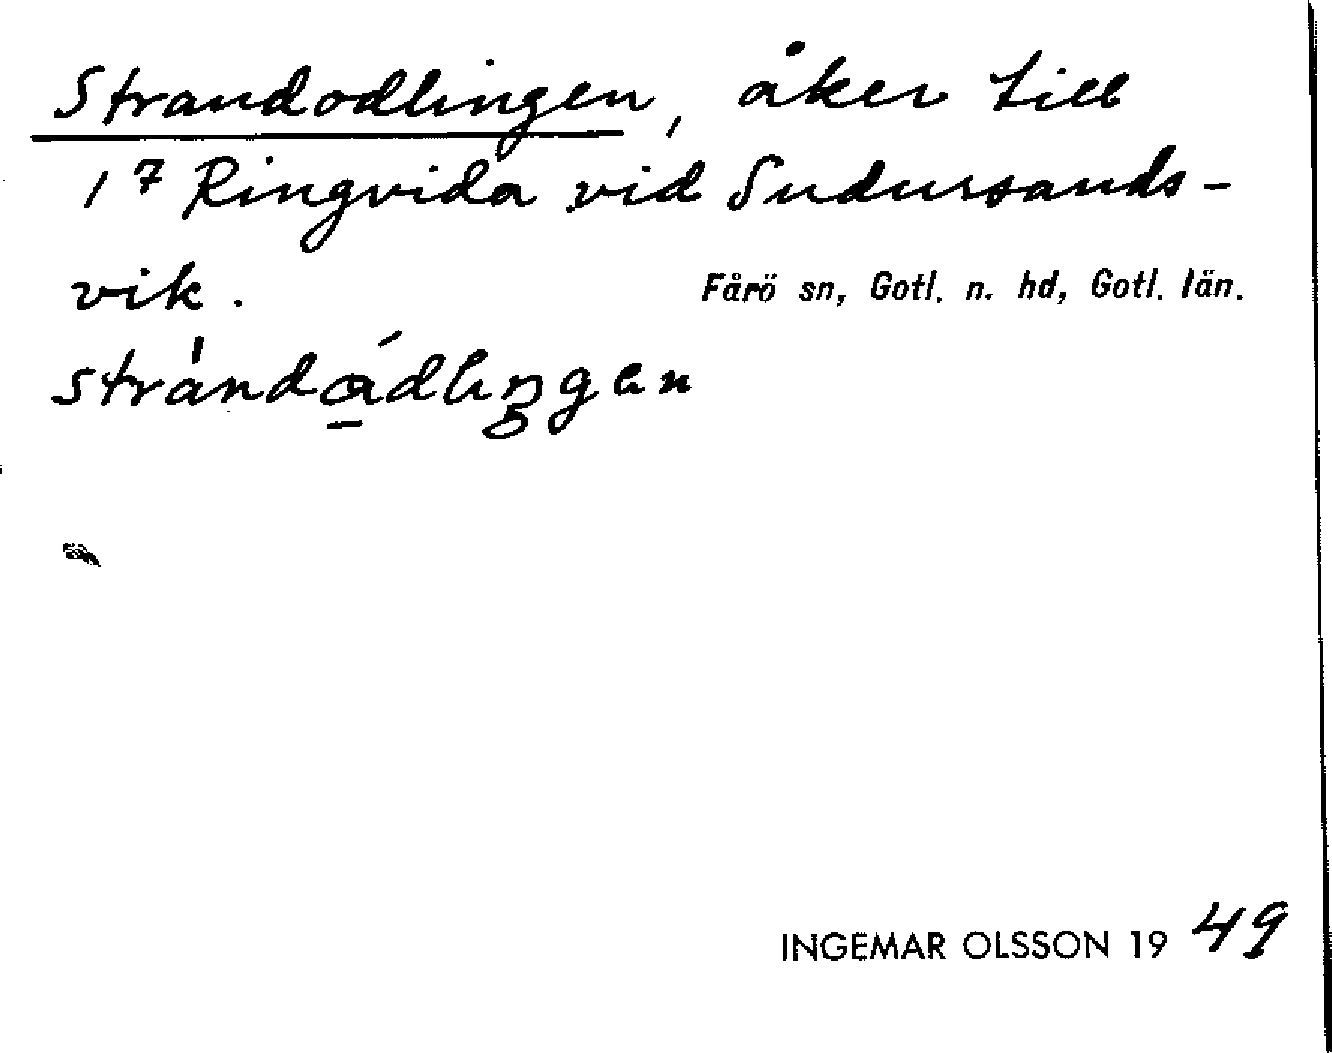 Strandodlingen, åker till
1⁷ Ringvida vid Sudursands-
vik.
Fårö sn, Gotl. n. hd, Gotl. län.
INGEMAR OLSSON 1949